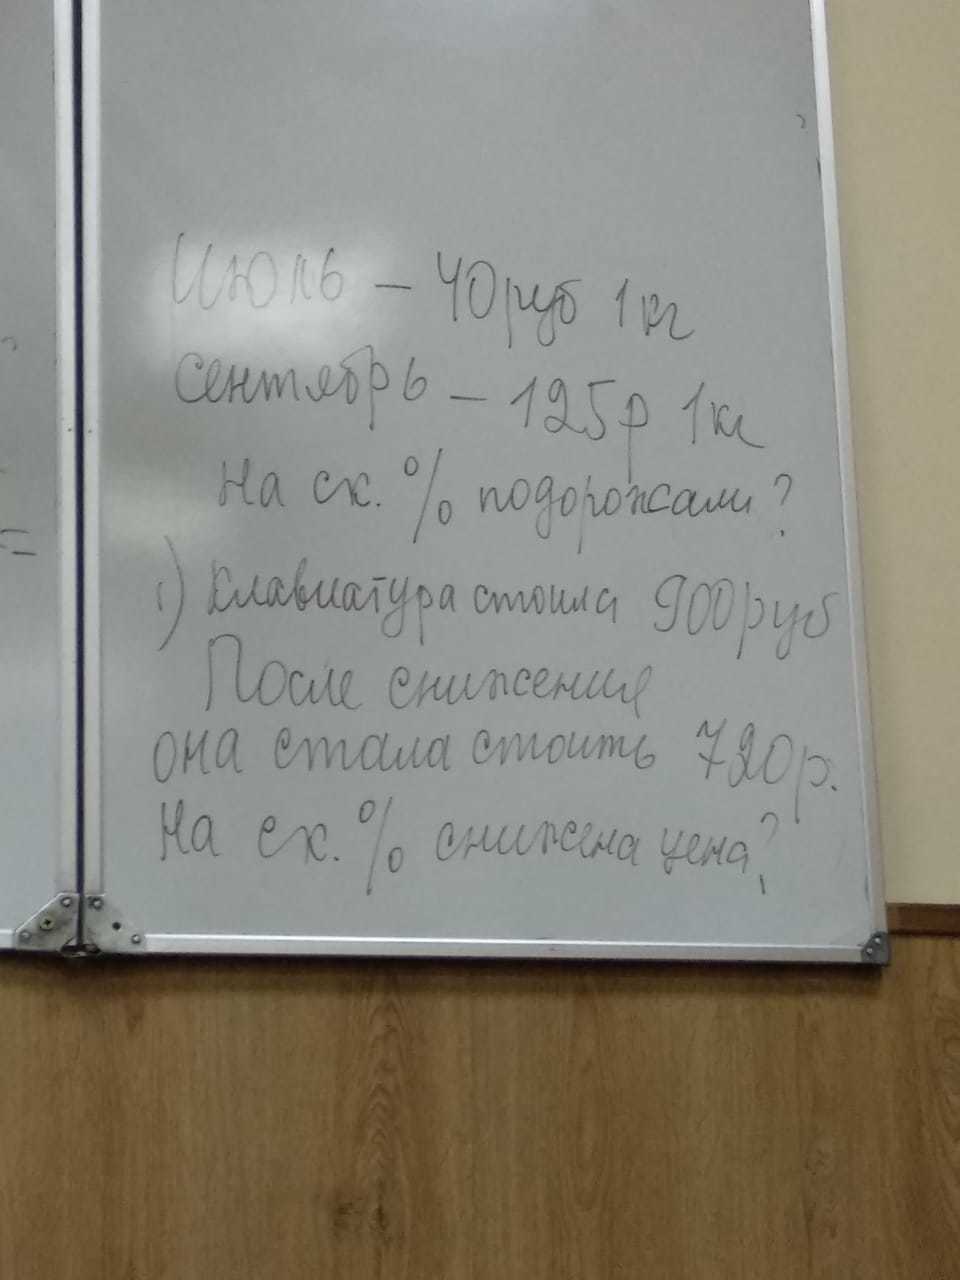 Июль - 40руб 1кг
сентябрь - 125р 1кг
На ск. % подорожали?
1) клавиатура стоила 900руб
После снижения
она стала стоить 720р.
На ск. % снижена цена?